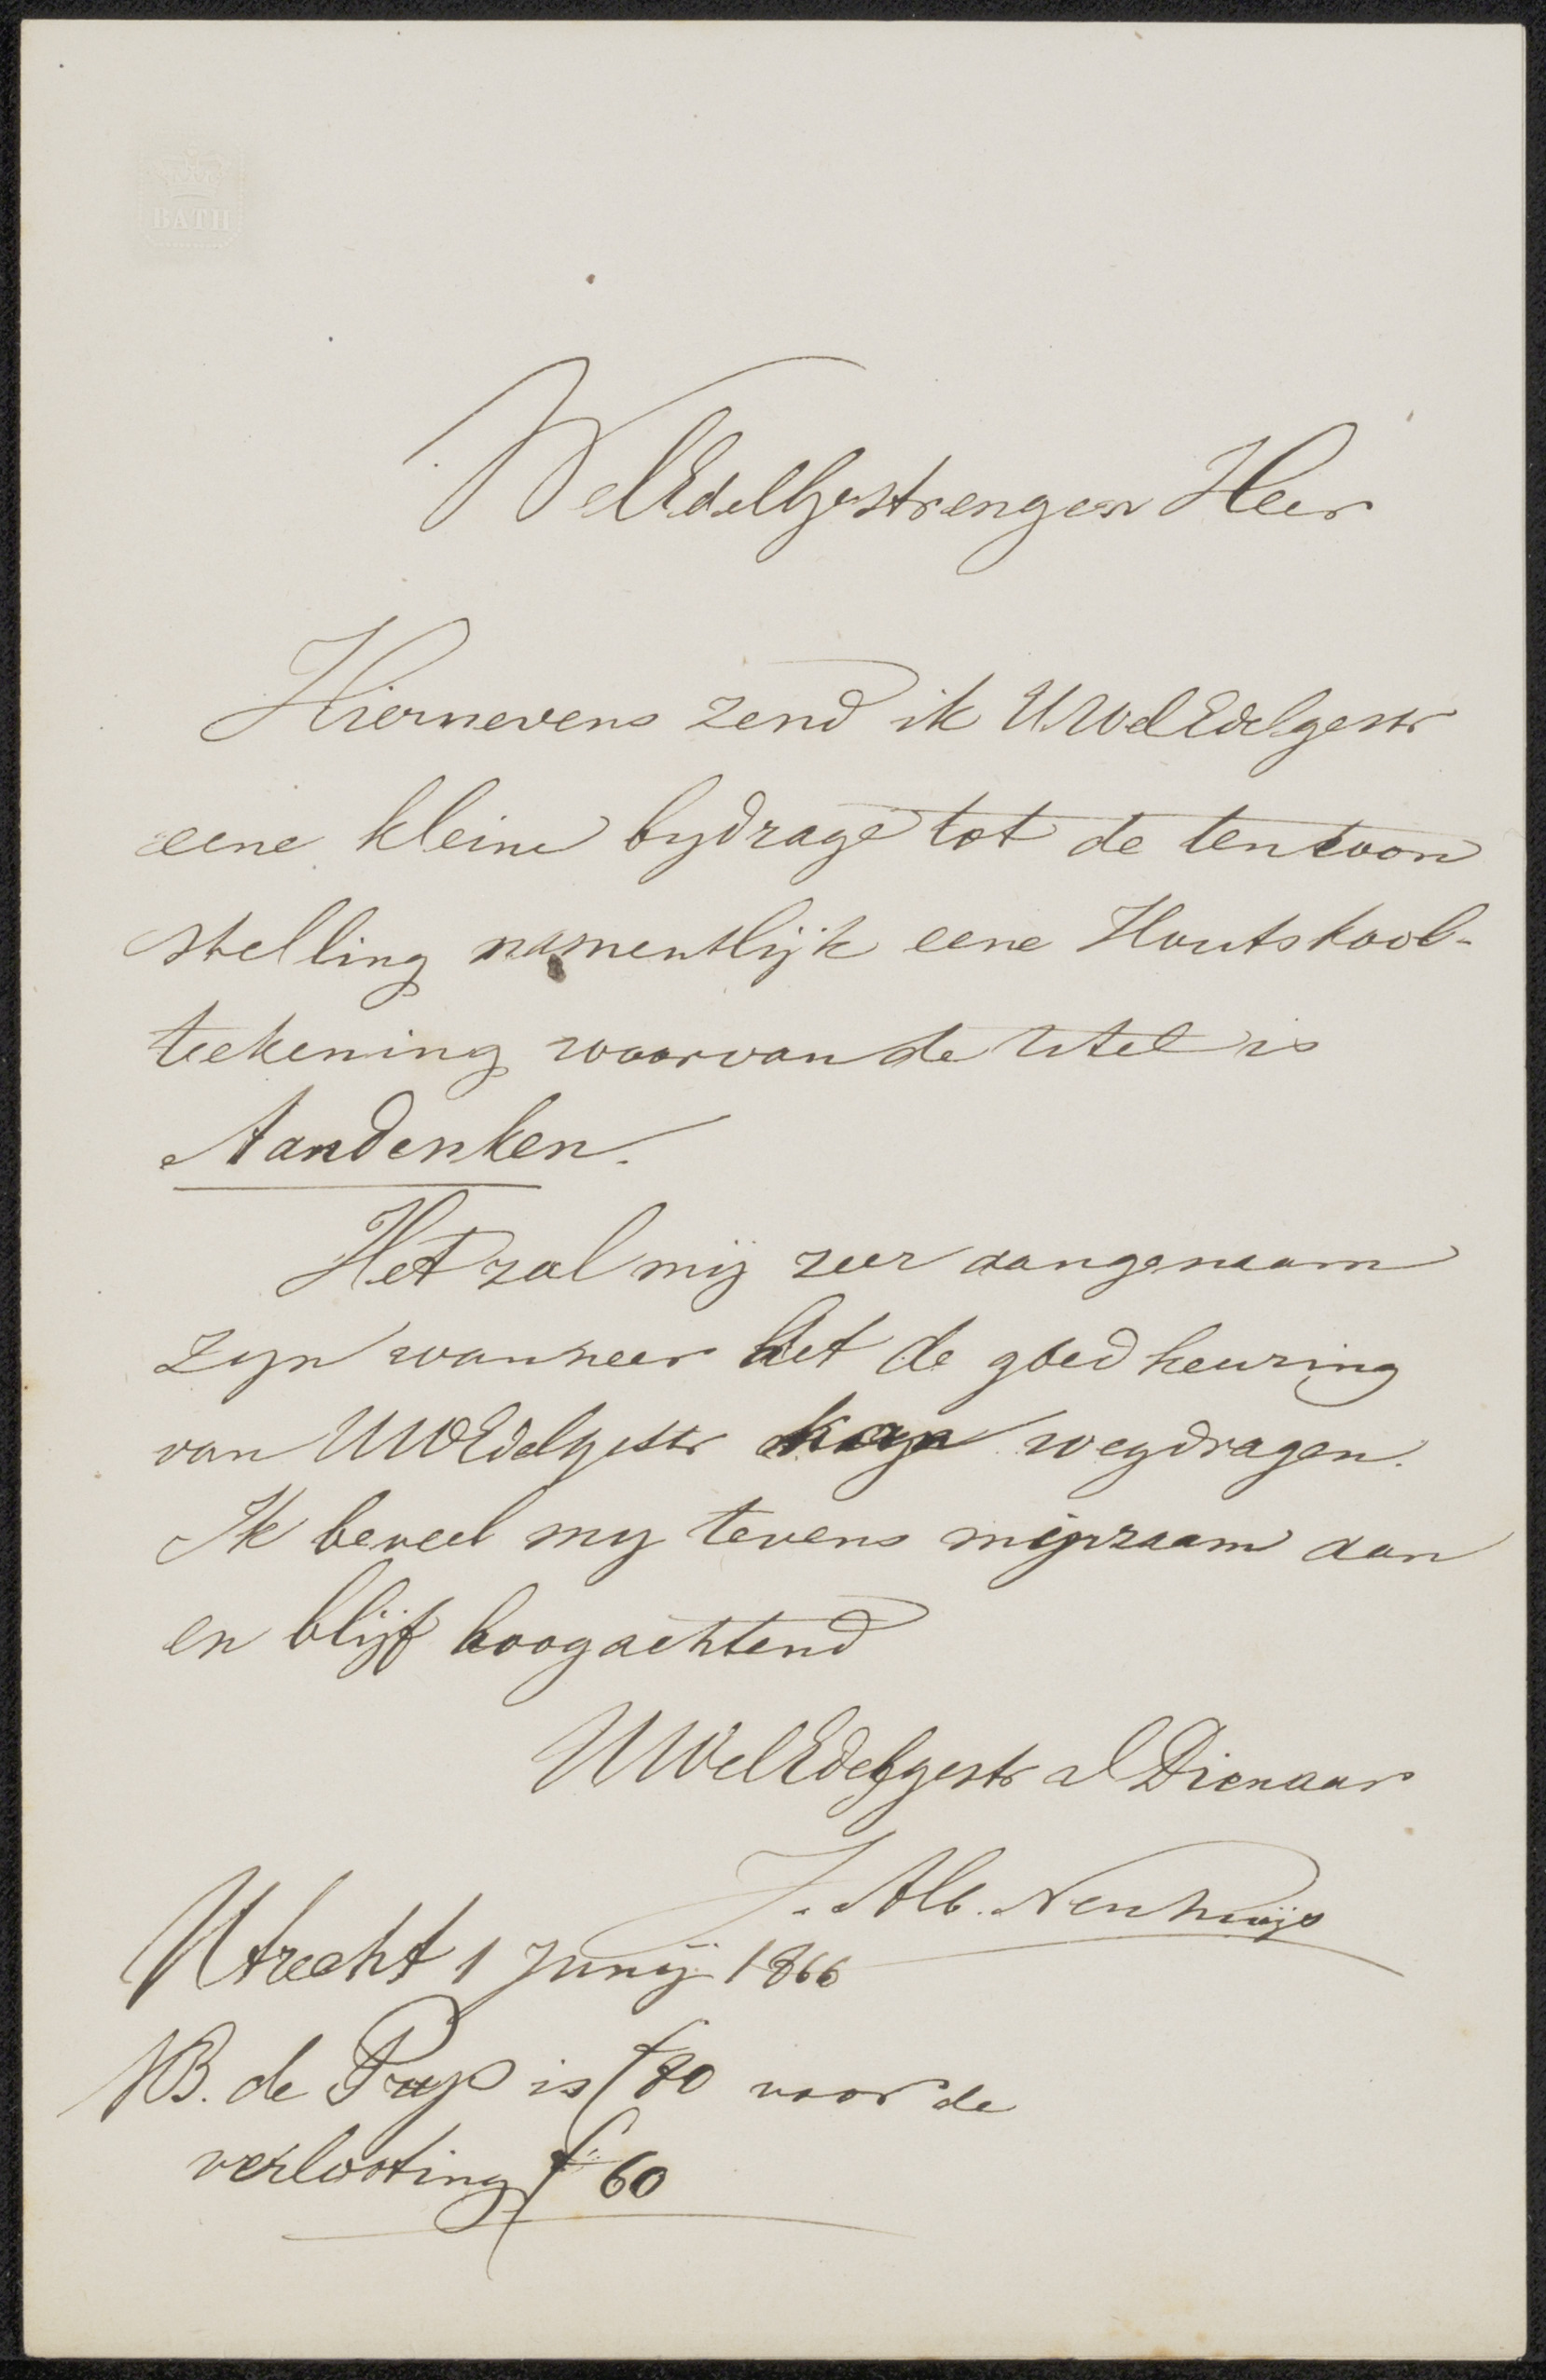 BATH
WelEdelGestrengen Heer
Hiernevens zend ik UWelEdelgestr
eene kleine bydrage tot de tentoon
stelling namentlijk eene Houtskool-
teekening waarvan de titel is
Aandenken.
Het zal mij zeer aangenaam
zyn wanneer het de goedkeuring
van UWEdelgestr kan wegdragen.
Ik beveel my tevens minzaam aan
en blijf hoogachtend
UWelEdelgestr d Dienaar
J. Alb. Neuhuijs
Utrecht 1 Junij 1866
NB. de Prys is f 80 voor de
verlooting f 60